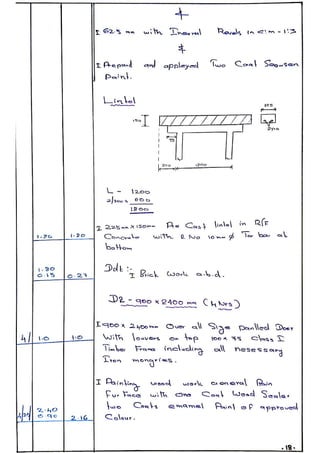 I 62.5 mm with Internal Reveals in c:m - 1:3
&
I Prepaird and applayed Two Coat
Paint.
Lintel
225
150
75
L - 1200
2/300 = 600
1800
I 225mm x 150mm Pre Cast lintel in R/F
1.80 1.80 Concrete with 2 No 10mm Ø Tor bar at
bottom
1.80 Ddt :-
0.15 0.27 I Brick Work a.b.d.
D2 - 900 x 2400 mm (4 Nrs)
I 900 x 2400mm Over all Size panlled Door
4/ 1.0 1.0 With louvers on top 100 x 75 class I
Timber Frame including all nesessary
Iron mongries.
I Painting wood work General Pain
Surface with one Coat Wood Sealer
2.40 two Coats enamal Paint of approved
0.90 2.16 Colour.
-18-